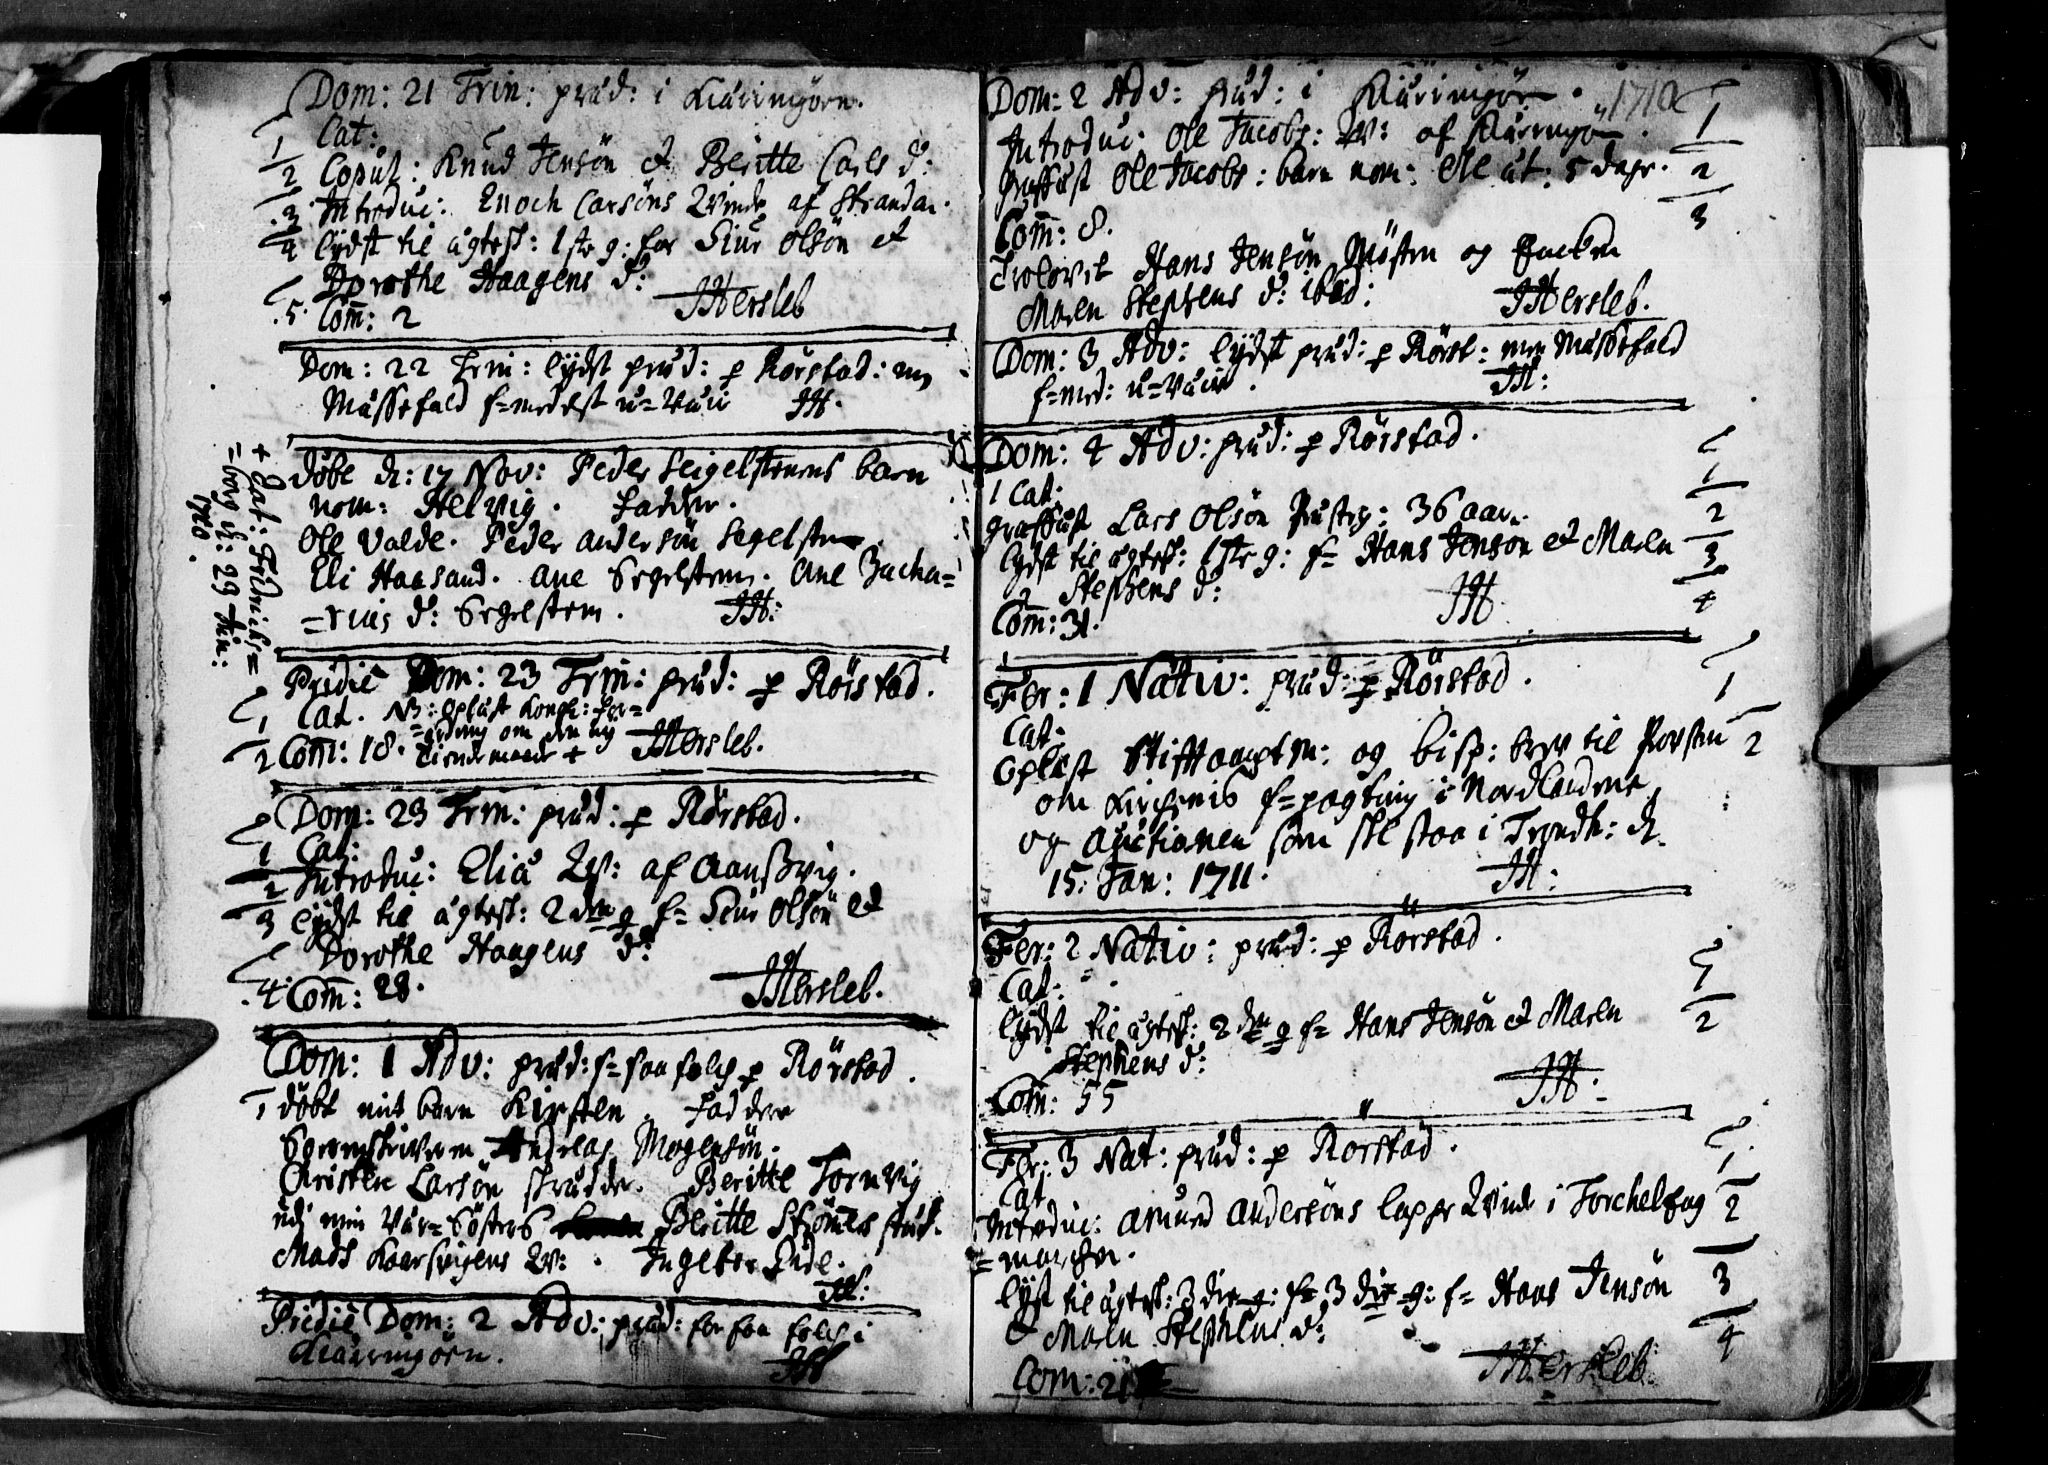 Dom: 21 Trin: præd: i Kiæringøen.
1 Cat:
2 Copul: Knud Jensøn et Beritte Carls d:
3 Introduc: Enoch Carsøns Qvinde af Strandae.
4 lydst til ægtesk: 1ste g: for Siur Olsøn et
Dorothe Haagens d:
5. Com̄: 2 JHersleb
Dom: 22 Trin: lydst præd: p Rørstad: men
Messefald f= medelst u=vær JH.
døbt d: 17 Nov: Peder Seigelstenens barn
nom: Helvig. Fadder.
Ole Valde. Peder Andersøn Segelsten.
Eli Haasand. Ane Segelstens. Ane Zacha=
=riæ d: Segelsten. JH:
1710.
Pridie Dom: 23 Trin: præd: p Rørstad.
1 Cat. NB: Oplæst Kongl: for=
=ordning om den ny
2 Com̄: 18. +
JHersleb.
Dom: 23 Trin: præd: p Rørstad.
1 Cat:
2 Introduc: Eliæ Qv: af Aansvig.
3 lydst til ægtesk: 2den g f= Siur Olsøn et
Dorothe Haagens d:
4. Com̄: 28. JHersleb.
Dom: 1 Adv: præd: f= faa folch p Rørstad.
1 døbt mit barn Kirsten. Fadder
Sorenskriveren Andreas Mogensøn.
Christen Larsøn Beritte Tornvig
min Vær=Søsters Beritte Strømes
Mads Kaarsvigens Qv: . Ingeber
JH:
Pridie Dom: 2 Adv: præd: for faa folch i
Kiæringøen. JH
Dom: 2 Adv: præd: i Kiæringøen. 1710
Introduc: Ole Jacobs: Qv: af Kiæringøen. 1
Græsfæst Ole Jacobs: barn nom: Ole æt: 5 dage. 2
Com̄: 8. 3
Trolovet Hans Jensøn og Encken
Maren Stephens d: ibid: JHersleb.
Dom: 3 Adv: lydst præd: p Rørst: men Messefald
f=med: u=vær. JH:
Dom: 4 Adv: præd: p Rørstad.
1 Cat: 1
Græsfæst Lars Olsøn : 36 aar. 2
lydst til ægtesk: 1ste g: f= Hans Jensøn et Maren 3
Stephens d: JH. 4
Com̄: 31.
Fer: 1 Nativ: præd: p Rørstad.
Cat: 1
Oplæst Stiftamptm: og bisp: brev til Prosten 2
om Kirchernis f=pagting i Nordlandene,
og auctionen som skl staa i Trondh: d.
15. Jan: 1711. JH:
Fer: 2 Nativ: præd: p Rørstad.
Cat: 1
lydst til ægtesk: 2den g f= Hans Jensøn et Maren 2
Stephens d:
Com̄: 55 JH.
Fer: 3 Nat: præd: p Rørstad.
Cat 1
Introduc: Amund Andersøns lappes Qvinde i Torchelfug 2
=marchen.
lyst til ægtesk: 3die g: f= 3die g: f= Hans Jensøn 3
& Maren Stephens d: 4
Com: 21 JHersleb.